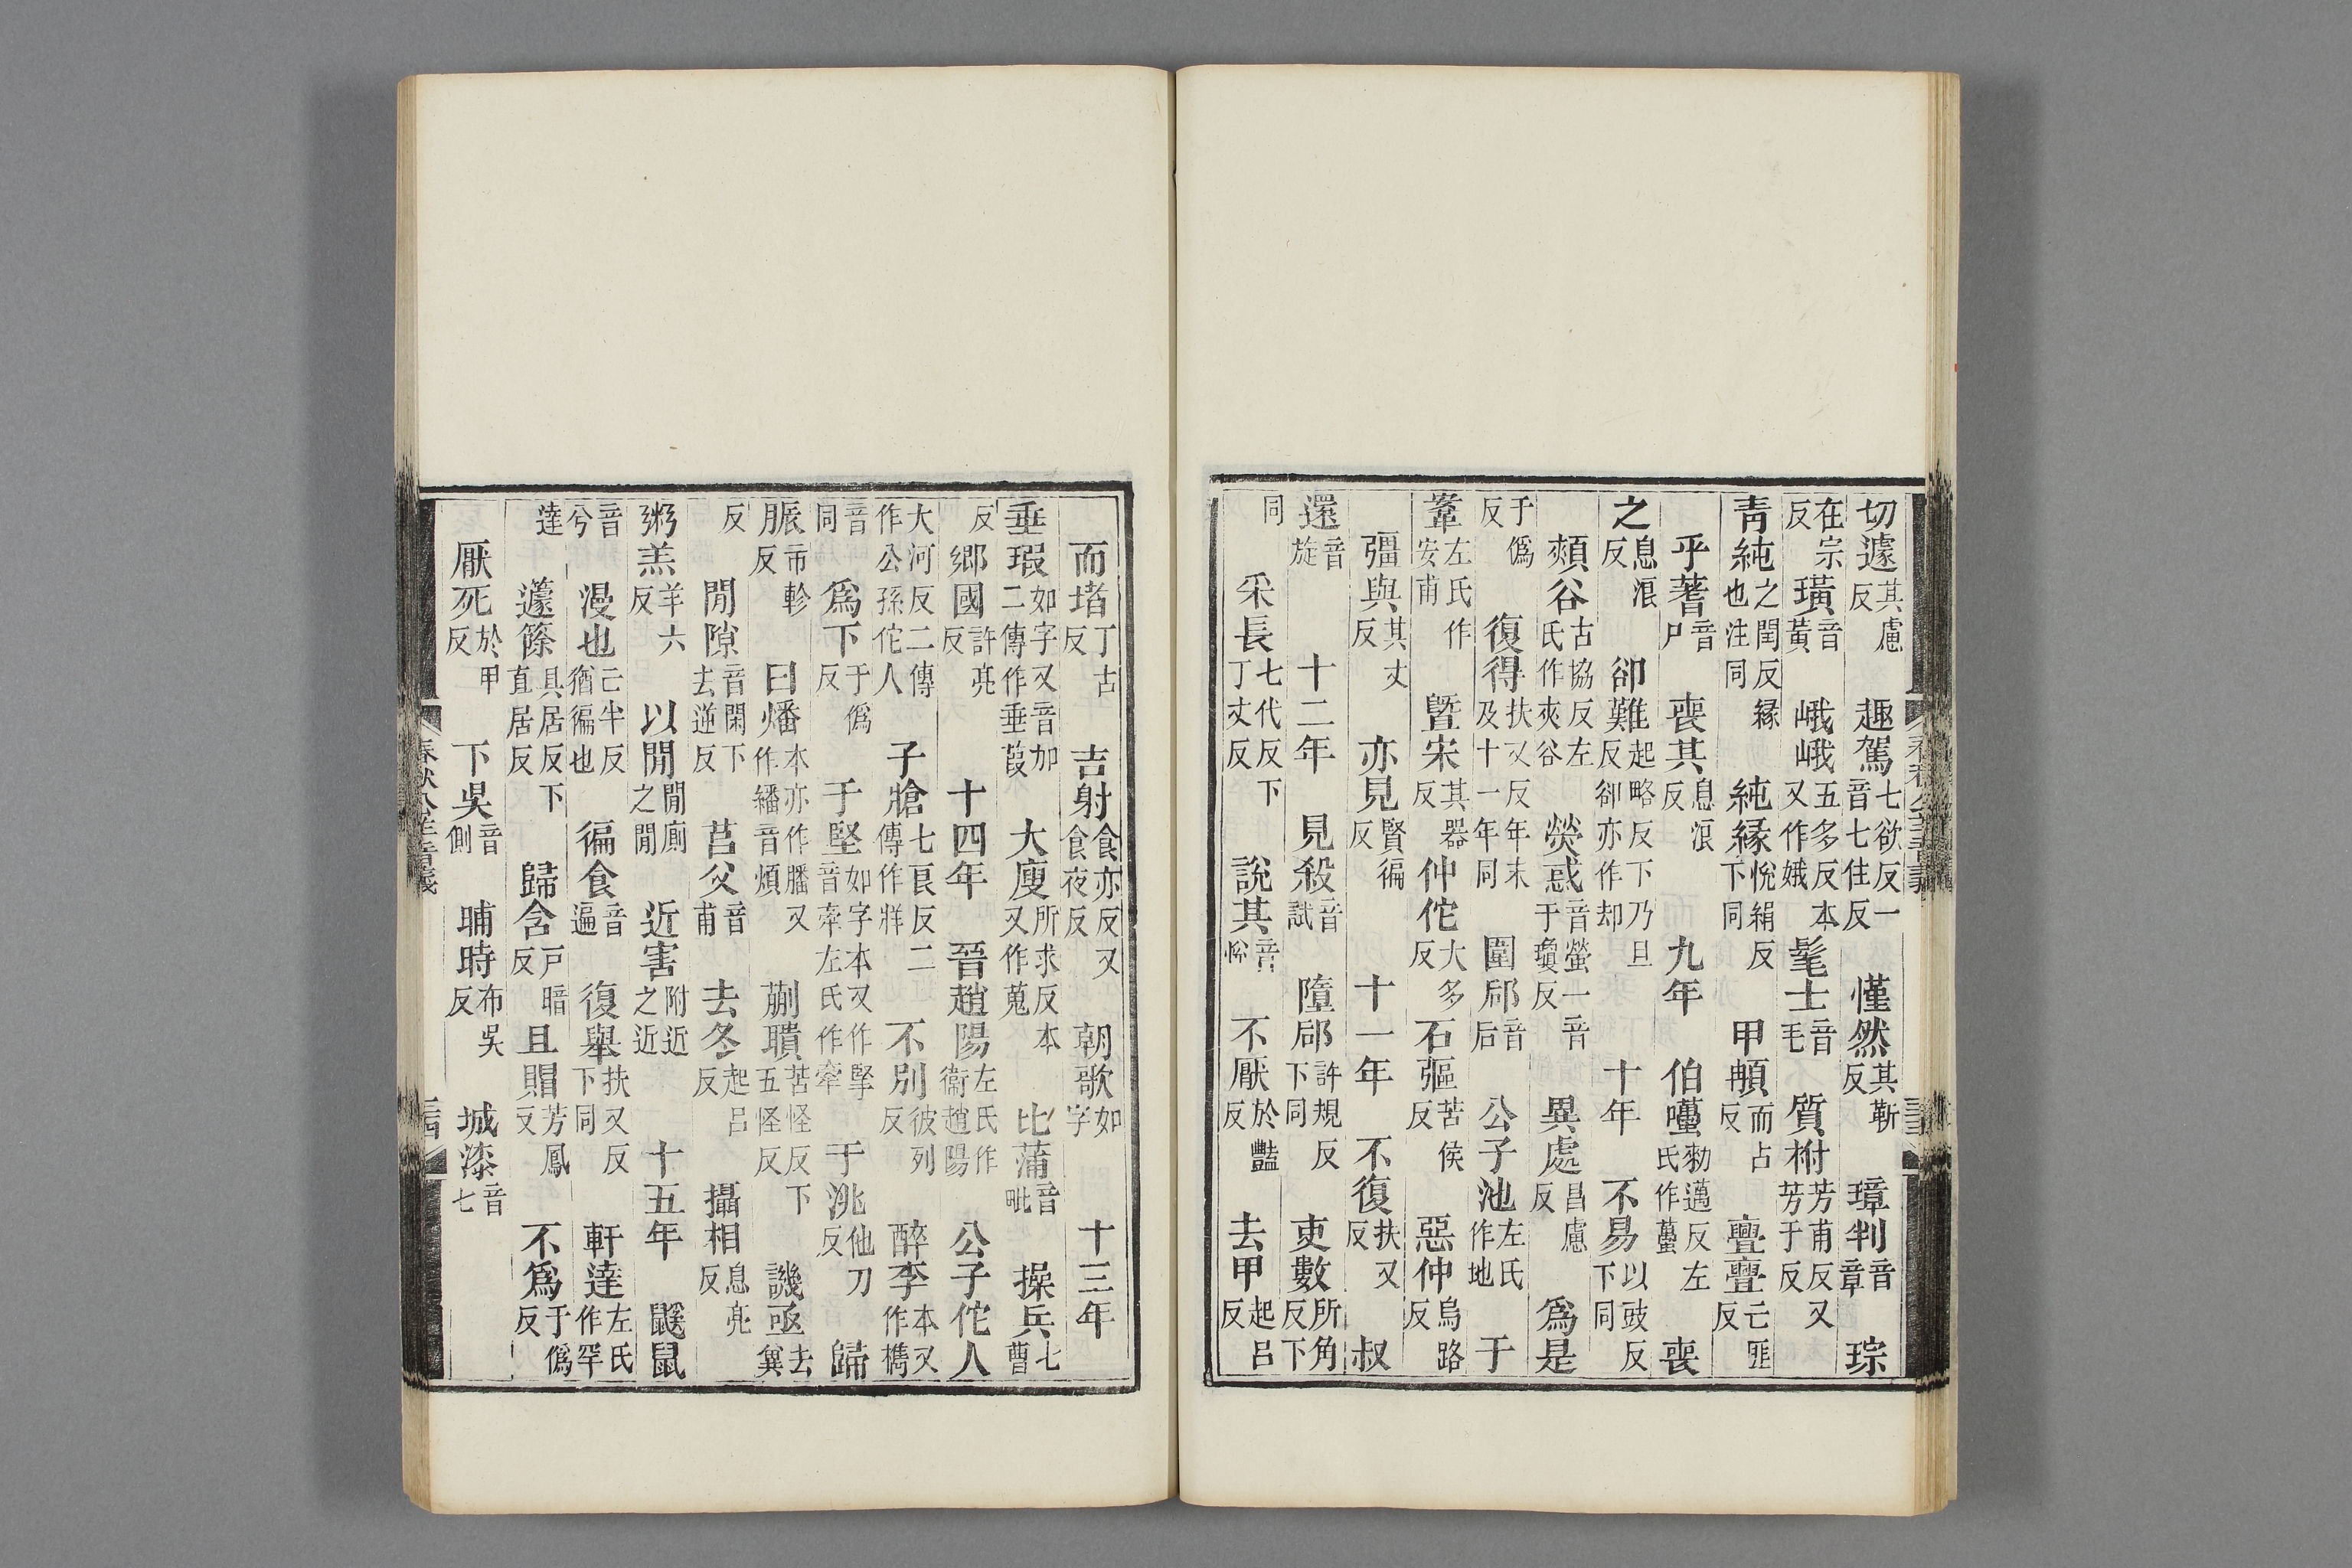 切遽其慮反 趣駕七欲反一音七住反 慬然其靳反 璋判音章 琮
在宗反 璜音黃 峨峨五多反本又作娥 髦士音毛 質柎芳甫反又芳于反
青純之閏反緣也注同 純緣悅絹反下同 甲䫇而占反 亹亹亡匪反
乎蓍音尸 喪其息浪反 九年 伯囆勑邁反左氏作蠆 喪
之息浪反 卻難起略反下乃旦反卻亦作却 十年 不易以豉反下同
頰谷古協反左氏作夾谷 熒惑音螢一音于瓊反 異處昌慮反 爲是
于僞反 復得扶又反年末及十一年同 圍郈音后 公子池左氏作地 于
鞌左氏作安甫 曁宋其器反 仲佗大多反 石彄苦侯反 惡仲烏路反
彊與其丈反 亦見賢徧反 十一年 不復扶又反 叔
還音旋 十二年 見殺音試 墮郈許規反下同 吏數所角反下
同 采長七代反下丁丈反 說其音悅 不厭於豔反 去甲起呂反
而堵丁古反 吉射食亦反又食夜反 朝歌如字 十三年
垂瑕如字又音加二傳作垂葭 大廋所求反本又作蒐 比蒲音毗 操兵七曹
反 鄉國許亮反 十四年 晉趙陽左氏作衛趙陽 公子佗人
大河反二傳作公孫佗人 子牄七良反二傳作牂 不別彼列反 醉李本又作檇
音同 爲下于僞反 于堅如字本又作掔音牽左氏作牽 于洮他刀反 歸
脤市軫反 曰燔本亦作膰又作繙音煩 蒯聵苦怪反下五怪反 譏亟去冀
反 閒隙音閑下去逆反 莒父音甫 去冬起呂反 攝相息亮反
粥羔羊六反 以閒閒廁之閒 近害附近之近 十五年 鼷鼠
音兮 漫也亡半反猶徧也 徧食音遍 復舉扶又反下同 軒達左氏作罕
達 籧篨具居反下直居反 歸含戶暗反 且賵芳鳳反 不爲于僞反
厭死於甲反 下昃音側 晡時布吳反 城漆音七
春秋公羊音義